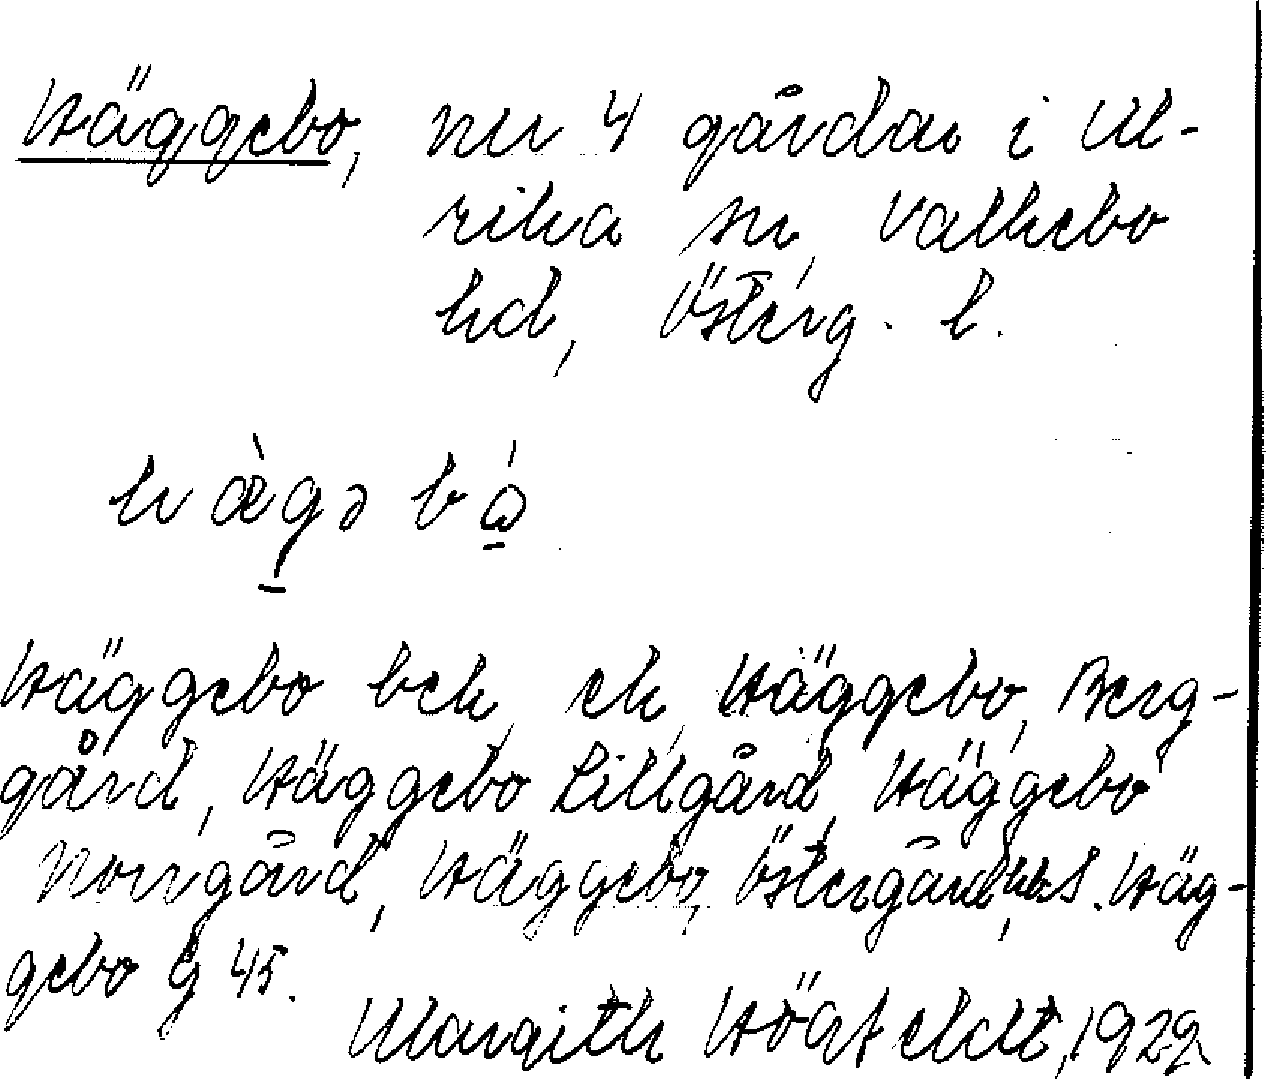 Häggebo, nu 4 gårdar i Ul-
rika sn, Valkebo
hd, Österg. l.
hæ̀gə bó̱
Häggebo bek, ek, Häggebo, Berg-
gård, Häggebo Lillgård, Häggebo
Norrgård, Häggebo, Östergård, S. Häg-
gebo G 45.
Margith Högfeldt, 1929